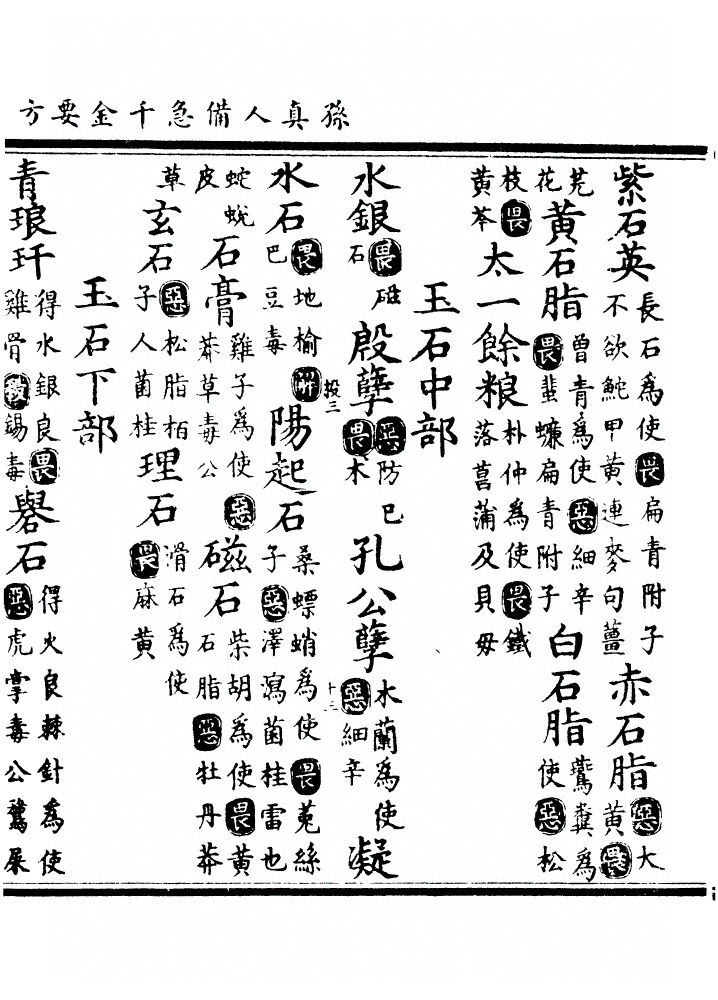 孫真人備急千金要方
紫石英長石為使畏扁青附子不欲鮀甲黃連麥句薑赤石脂惡大黃畏
芫花黃石脂曾青為使惡細辛畏蜚蠊扁青附子白石脂鷰糞為使惡松
枝畏黃芩太一餘粮朴仲為使畏鐵落菖蒲及貝母
玉石中部
水銀畏磁石殷孽惡防巳畏木孔公孽木蘭為使惡細辛凝
投三
十三
水石畏地榆解巴豆毒陽起石桑螵蛸為使畏菟絲子惡澤瀉菌桂雷也
蛇蛻皮石膏雞子為使惡莽草毒公磁石柴胡為使畏黃石脂惡牡丹莽
草玄石惡松脂柏子人菌桂理石滑石為使畏麻黃
玉石下部
青琅玕得水銀良畏雞骨殺錫毒礜石得火良棘針為使惡虎掌毒公鶩屎